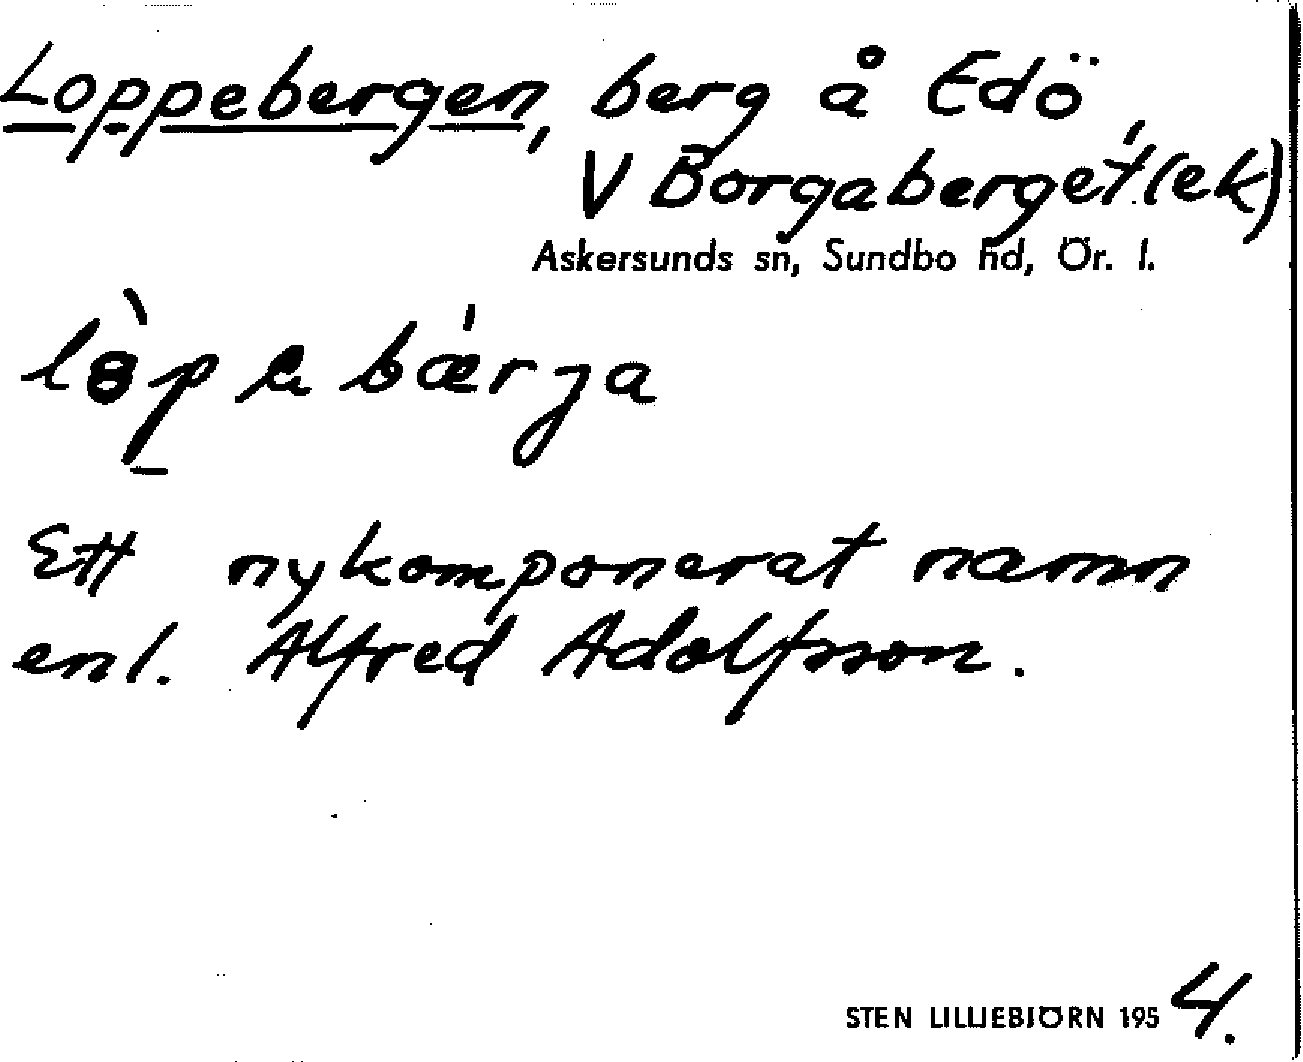 Loppebergen, berg å Edö,
V Borgaberget (ek)
Askersunds sn, Sundbo hd, Ör. l.
Ett nykomponerat namn
enl. Alfred Adolfsson.
STEN LILLIEBJÖRN 1954.